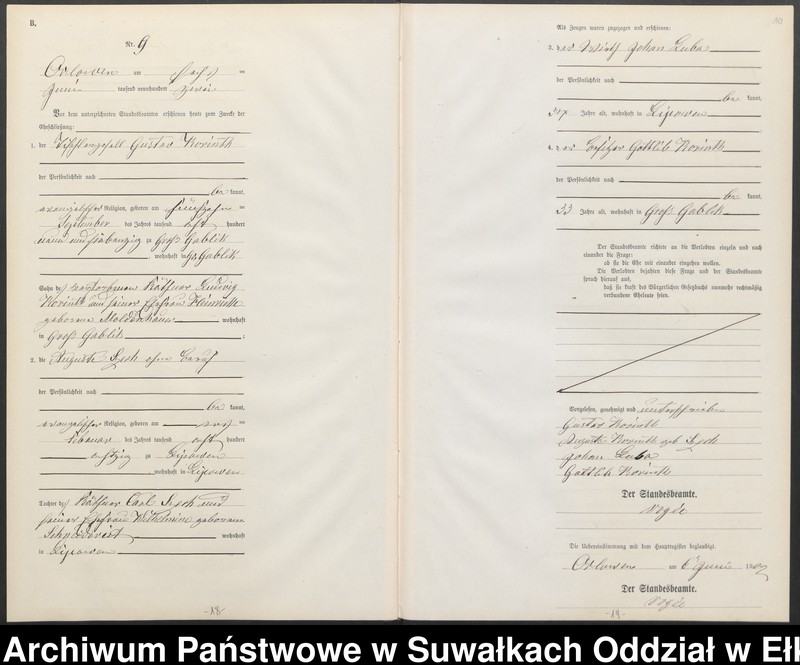 B.
Nr. 9
Orlowen am sechs ten
Juni tausend neunhundert zwei
Vor dem unterzeichneten Standesbeamten erschienen heute zum Zwecke der
Eheschließung:
1. der Gustav Korinth
der Persönlichkeit nach
be kannt,
evangelischer Religion, geboren am fünfzehn ten
September des Jahres tausend acht hundert
neun und siebenzig zu Groß Gablick
, wohnhaft in Gr. Gablick
Sohn des verstorbenen Käthner Ludwig
Korinth und seiner Ehefrau Henriette
geborene Moldenhauer wohnhaft
in Groß Gablick ;
2. die Auguste ohne Beruf
der Persönlichkeit nach
be kannt,
evangelischer Religion, geboren am ersten
Februar des Jahres tausend acht hundert
achtzig zu Lipowen
, wohnhaft in Lipowen
Tochter des Käthner Carl und
seiner Ehefrau Wilhelmine geborenen
wohnhaft
in Lipowen
-18-
10
Als Zeugen waren zugezogen und erschienen:
3. der Wirth Johan Luba
der Persönlichkeit nach
be kannt,
Jahre alt, wohnhaft in Lipowen
4. der Besitzer Gottlieb Korinth
der Persönlichkeit nach
be kannt,
33 Jahre alt, wohnhaft in Groß Gablick
Der Standesbeamte richtete an die Verlobten einzeln und nach
einander die Frage:
ob sie die Ehe mit einander eingehen wollen.
Die Verlobten bejahten diese Frage und der Standesbeamte
sprach hierauf aus,
daß sie kraft des Bürgerlichen Gesetzbuchs nunmehr rechtmäßig
verbundene Eheleute seien.
Vorgelesen, genehmigt und unterschrieben
Gustav Korinth
Auguste Korinth geb.
Johan Luba
Gottlieb Korinth
Der Standesbeamte.
Die Uebereinstimmung mit dem Hauptregister beglaubigt.
Orlowen am 6 Juni 1902
Der Standesbeamte.
-19-
Archiwum Państwowe w Suwałkach Oddział w Eł